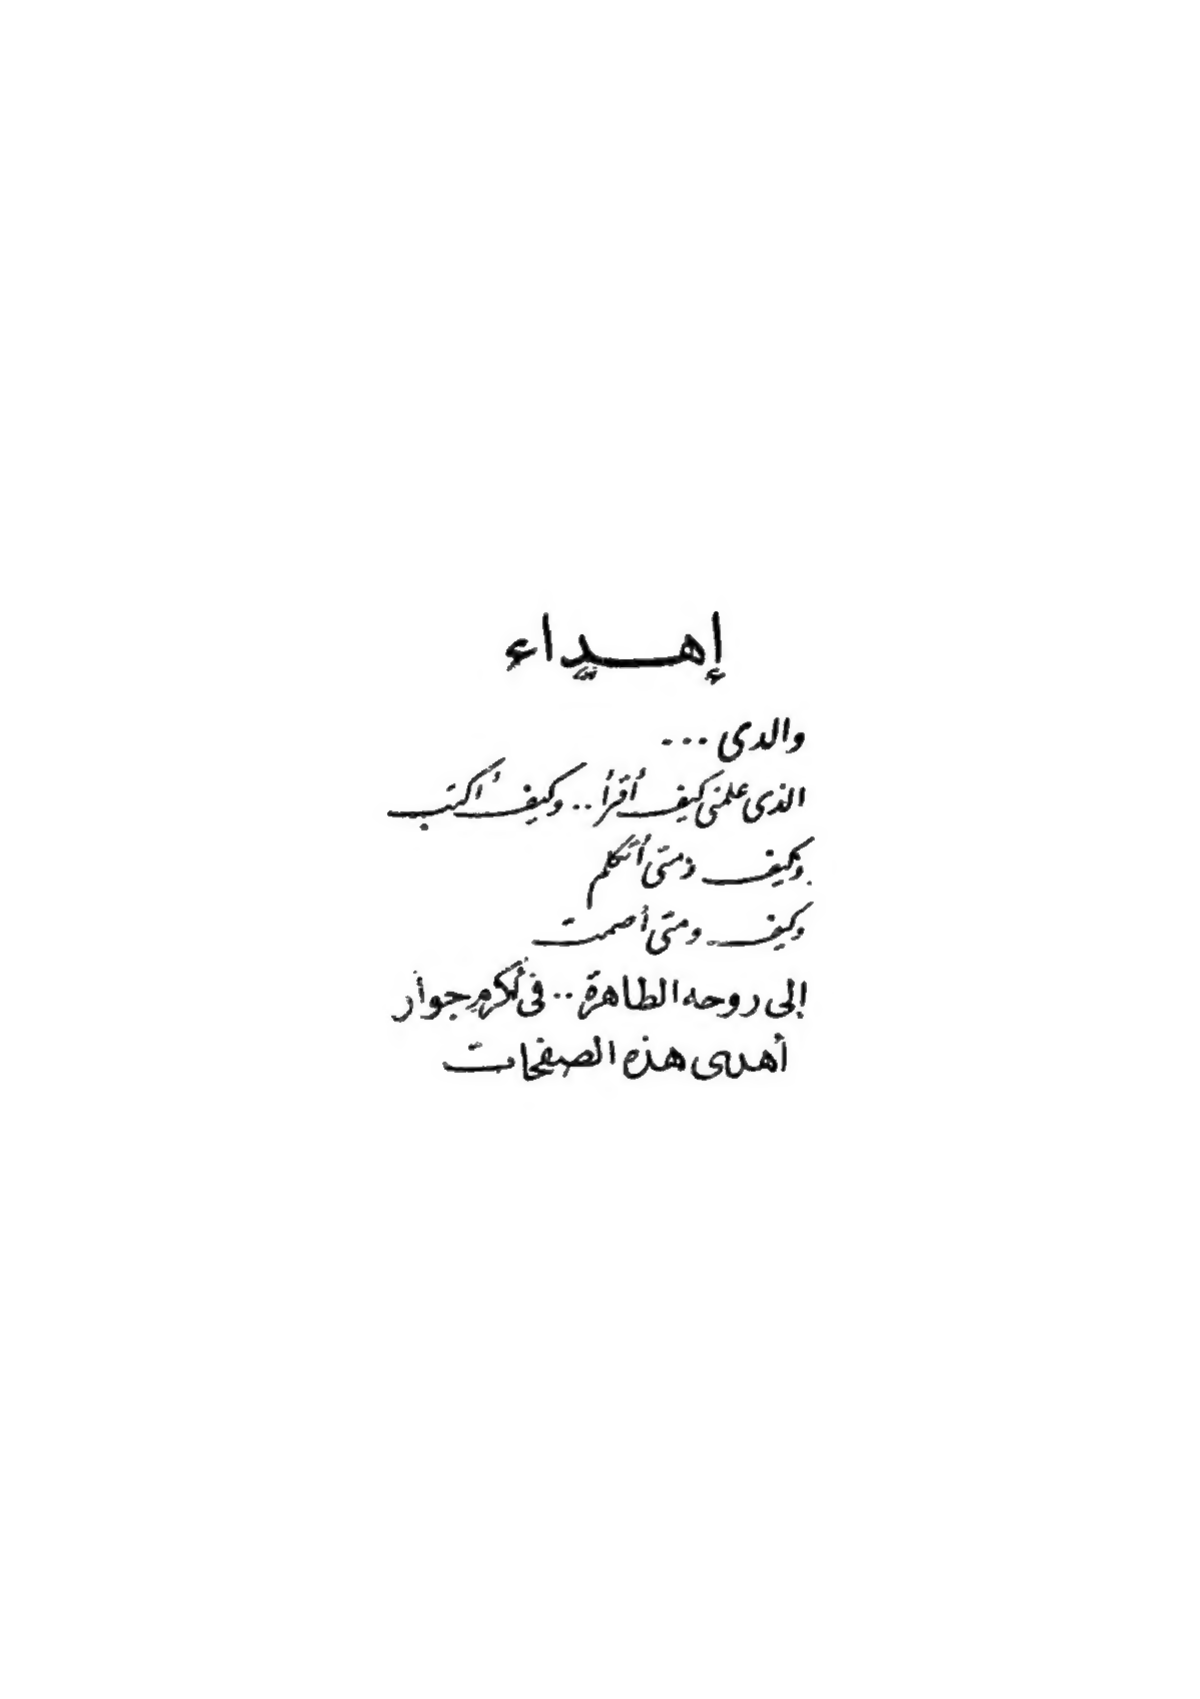 إهداء
والدى ...
الذى علمنى كيف أقرأ .. وكيف أكتب
وكيف ومتى أتكلم
وكيف ومتى أصمت
إلى روحه الطاهرة .. فى أكرم جوار
أهدى هذه الصفحات